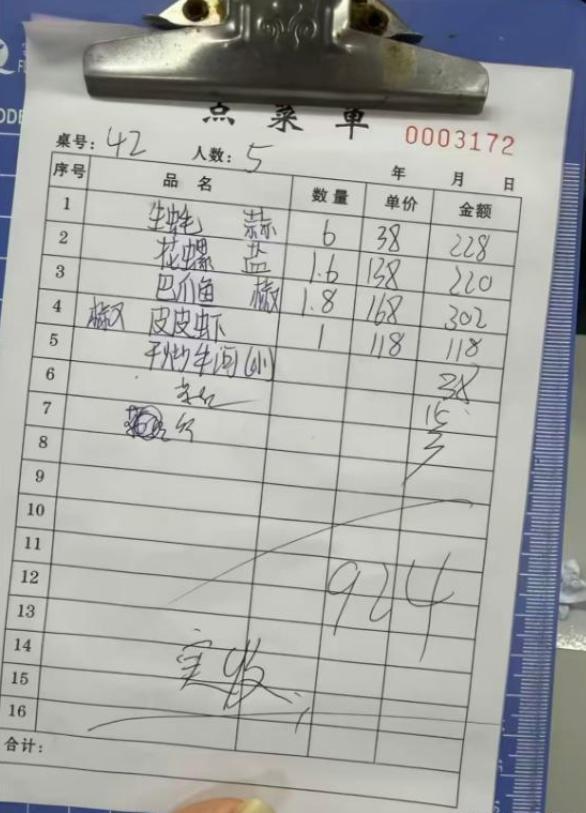 点菜单
0003172
桌号: 42 人数: 5 年 月 日
序号 品名 数量 单价 金额
1 生蚝 蒜 6 38 228
2 花螺 盐 1.6 138 220
3 巴爪鱼 椒 1.8 168 302
4 椒 皮皮虾 1 118 118
5 干炒牛河(小) 38
6 15
7 3
8
9
10
11
12 924
13
14
15 实收
16
合计: